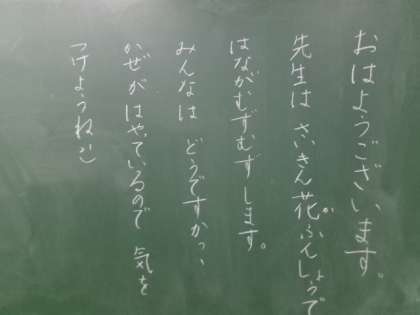 おはようございます。
先生は さいきん花ふんしょうで
はながむずむずします。
みんなは どうですかっ、
かぜが はやっているので 気を
つけようね